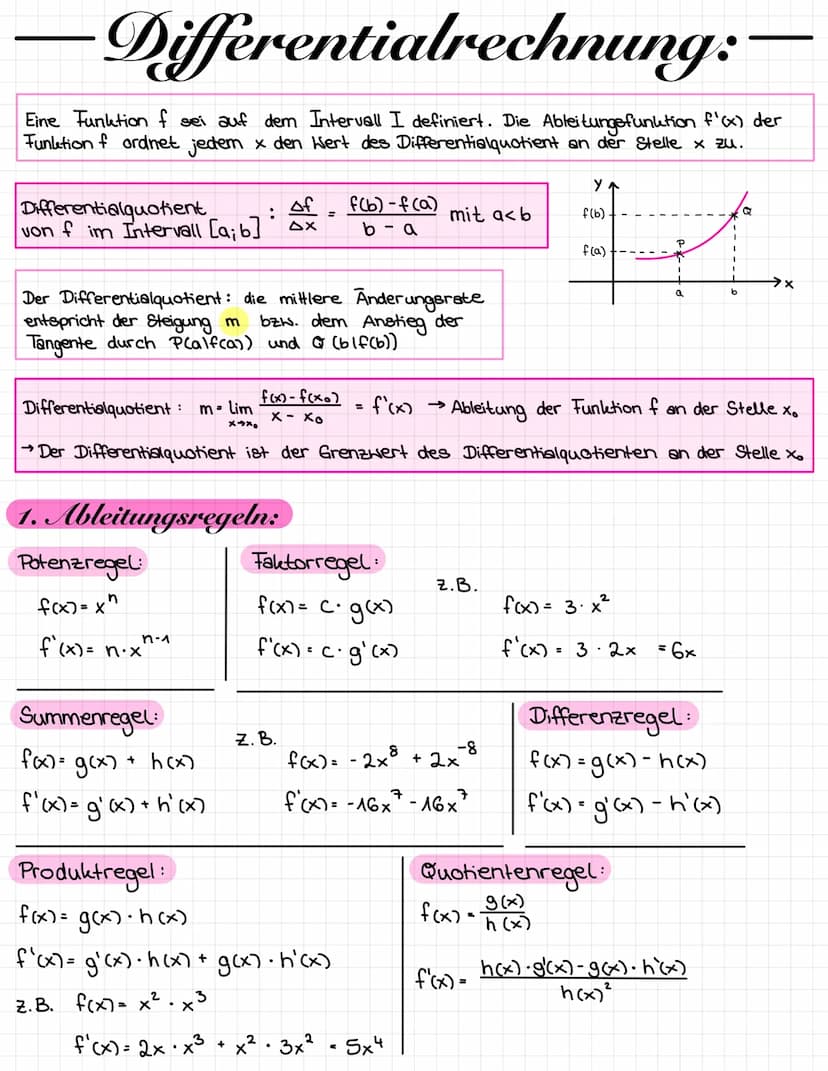 Differentialrechnung:
Eine Funktion f sei auf dem Intervall I definiert. Die Ableitungsfunktion f'(x) der
Funktion f ordnet jedem x den Wert des Differentialquotient an der Stelle x zu.
Differentialquotient
von f im Intervall [a;b] : Δf/Δx = (f(b)-f(a))/(b - a) mit a<b
y
f(b)
Q
f(a)
P
x
a
b
Der Differentialquotient: die mittlere Änderungsrate
entspricht der Steigung m bzw. dem Anstieg der
Tangente durch P(a|f(a)) und Q (b|f(b))
Differentialquotient: m = lim x→x₀ (f(x)-f(x₀))/(x - x₀) = f'(x) → Ableitung der Funktion f an der Stelle x₀
→ Der Differentialquotient ist der Grenzwert des Differentialquotienten an der Stelle x₀
1. Ableitungsregeln:
Potenzregel:
f(x) = xⁿ
f'(x) = n·xⁿ⁻¹
Faktorregel:
f(x) = c · g(x)
f'(x) = c · g'(x)
z.B.
f(x) = 3 · x²
f'(x) = 3 · 2x = 6x
Summenregel:
f(x) = g(x) + h(x)
f'(x) = g'(x) + h'(x)
z.B.
f(x) = -2x⁸ + 2x⁻⁸
f'(x) = -16x⁷ - 16x⁷
Differenzregel:
f(x) = g(x) - h(x)
f'(x) = g'(x) - h'(x)
Produktregel:
f(x) = g(x) · h(x)
f'(x) = g'(x) · h(x) + g(x) · h'(x)
z.B. f(x) = x² · x³
f'(x) = 2x · x³ + x² · 3x² = 5x⁴
Quotientenregel:
f(x) = g(x)/h(x)
f'(x) = (h(x)·g'(x) - g(x)·h'(x))/h(x)²